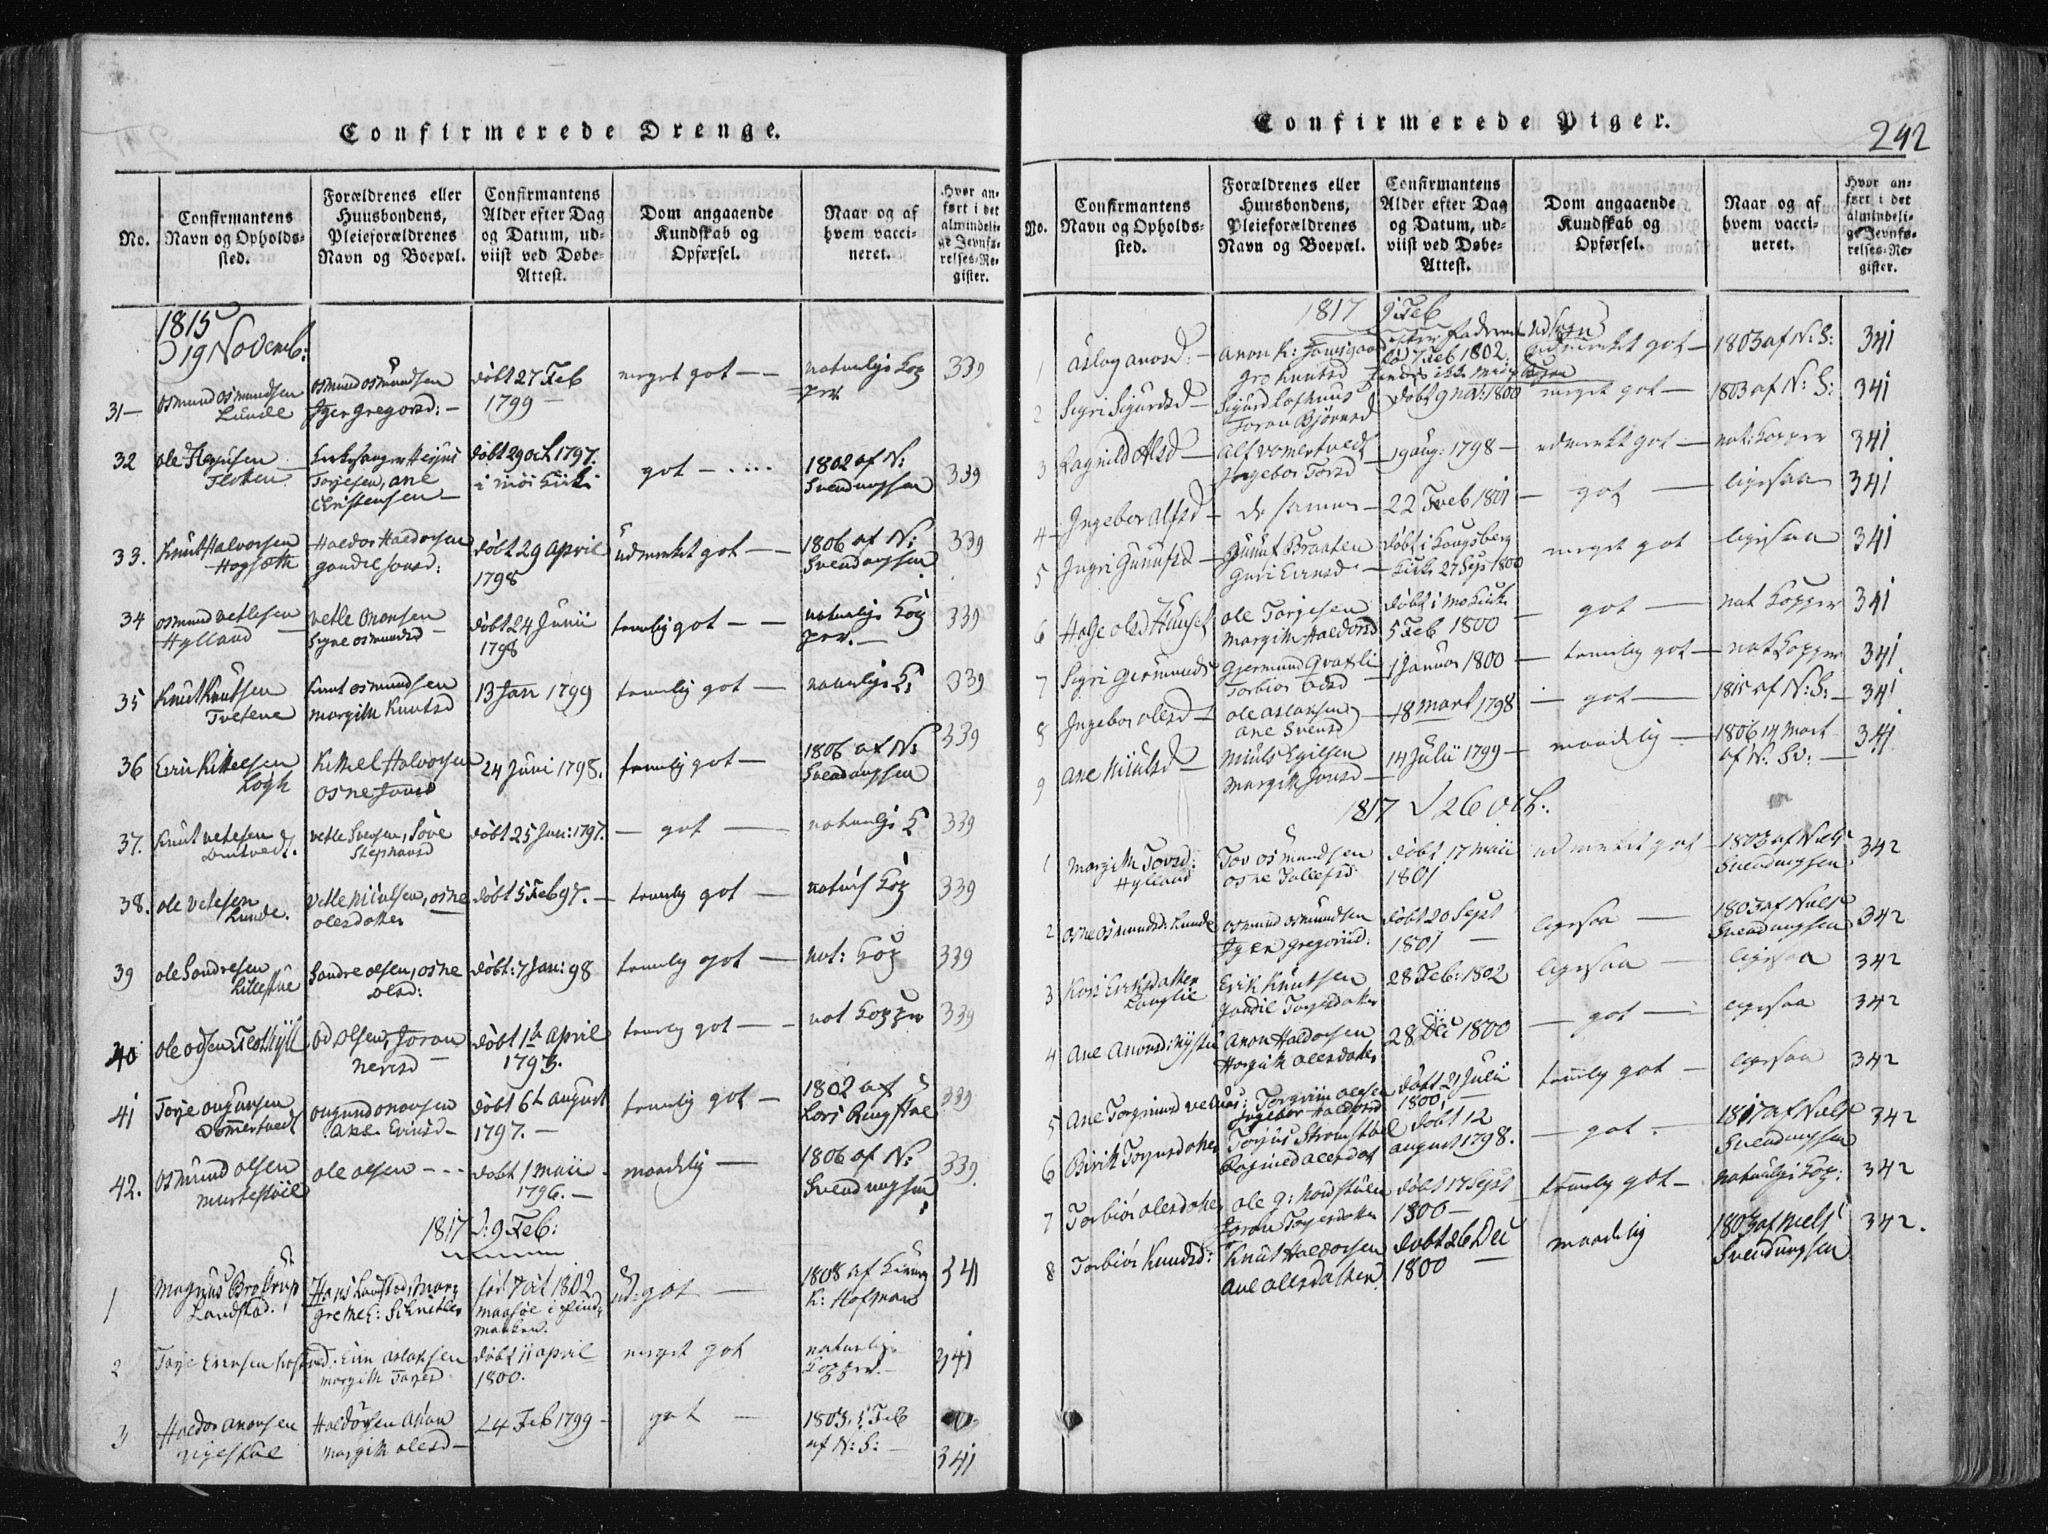 Confirmerede Drenge.
No.
Confirmantens
Navn og Opholds-
sted.
Forældrenes eller
Huusbondens,
Pleieforældrenes
Navn og Boepæl.
Confirmantens
Alder efter Dag
og Datum, ud-
viist ved Døbe-
Attest.
Dom angaaende
Kundskab og
Opførsel.
Naar og af
hvem vacci-
neret.
Hvor an-
ført i det
almindeli-
ge Jevnfø-
relses-Re-
gister.
1815
D 19 Novemb:
31 — osmund osmundsen
Lunde
osmund osmundsen
gregorsd: —
døbt 27 Feb
1799 —
meget got — —
naturlige Kop
per
339
32 ole
Floten
Kirkesanger
Torjesen, ane
Christensen —
døbt 29 oct 1797.
i Moi Kirke
got — ....
1802 af N:
Svendungsen
339
33. Knut Halvorsen
Hogsæth
Haldor Haldorsen
gondil Jonsd:
døbt 29 April
1798
udmerket got — —
1806 af N:
Svendungsen
339
34 osmund vetlesen
Hylland —
vetle onansen
Signe osmundsd —
døbt 24 Junii
1798
temlig got — —
naturlige Kop
per. —
339
35 Knut Knutsen
Tvetene
Knut osmundsen
margith Knutsd
13 Jan 1799
temlig got —
naturlige K:
339
36 Eivin Kittelsen
Logh
Kittel Halvorsen
osne Jonsd
24 Juni 1798.
temlig got —
1806 af N:
Svendungsen
339
37. Knut vetlesen
vetle Svensen, Sove
Stephansd
døbt 25 Jan: 1797.
— got —
naturlige K
339
38. ole vetlesen
Lunde.
vetle Niculsen, osne
olesdotter
døbt 5 Feb 97. —
temlig got —
natur: Kop
339
39 ole Sondresen
Lillestue
Sondre olsen, osne
olesd:
døbt: 7 Jan: 98
temlig got —
nat: Kop
339
40 ole odsen
od olsen, Joran
døbt 1ste April
1793.
temlig got — —
nat Kopper
339
41 Torje ongunsen
ongund onansen
Eivinsd —
døbt 6te August
1797. —
temlig got —
1802 af
Lars Ringstae
339
42. osmund olsen
ole olsen - - -
døbt 1 Maii
1796. —
maadelig —
1806 af N:
Svendungsen
339.
1817 D: 9 Feb:
1 Magnus Brostrup
Landstad.
Hans Landstad, Mar-
grethe E: Schnitler
fød 7 oct 1802
Maasøe i Find-
marken.
ud: got —
1808 af
K: Hofman
341
2 Torje Eivensen
Eivin aslaksen
margith Torjesd
døbt 11 april
1800.
meget got
naturlige
Kopper —
341
3 Haldor anonsen
Nigestue
Haldorsen Anon
margith olesd —
24 Feb 1799 —
got —
1803, 5 Feb
af N: S: —
341
Confirmerede Piger.
242
No.
Confirmantens
Navn og Opholds-
sted.
Forældrenes eller
Huusbondens,
Pleieforældrenes
Navn og Boepæl.
Confirmantens
Alder efter Dag
og Datum, ud-
viist ved Døbe-
Attest.
Dom angaaende
Kundskab og
Opførsel.
Naar og af
hvem vacci-
neret.
Hvor an-
ført i det
almindeli-
ge Jevnfø-
relses-Re-
gister.
1817 9 Feb
1 aslog anonsd: —
Anon K:
Gro Knutsd
7 Feb 1802.
udmerket got —
1803 af N: S:
341
2 Sigri Sigurdsd —
Sigurd Loshuus
Joran Bjørnsd
døbt 9 Nov: 1800
meget got —
1803 af N: S:
341
3 Ragnild Alsd —
Alf vomertvedt
Ingebor Torsd
19 aug: 1798 —
udmerkt got —
nat: Kopper
341
4 Ingebor Alfsd —
de samme —
22 Feb 1801
— got —
ligesaa
341
5 Ingri Gunufsd —
Gunuf Braaten
Guri Eivensd —
døbt i Kongsberg
Kirke 27 Sept 1800
meget got
ligesaa
341
6 Helge olesd
ole Torjesen
margith Haldorsd
døbt i Mo Kirke
5 Feb 1800
— got —
nat Kopper
341
7 Sigri Germundsd
Gjermund Qvasli
Torbiør odsd —
1 Januar 1800
— temlig got —
nat Kopper
341
8 Ingebor olesd —
ole aslaksen
ane Svensd
18 mart 1798
— got —
1815 af N: S: —
341
9 Ane Niculsd —
Niculs Egilsen
margith Jonsd —
14 Julii 1799 —
maadelig —
1806 14 Mart
af N: Sv: —
341
1817 D 26 Octb:
1 Margith Tovsd:
Hylland
Tov osmundsen
osne Tallefsd.
døbt 17 Maii
1801
udmerket got —
1803 af Niels
Svendungsen
342
2 osne osmundsd: Lunde
osmund osmundsen
gregorsd:
døbt 20 Sept
1801 —
ligesaa —
1803 af Niels
Svendungsen
342
3 Kari Eriksdatter
Langlie
Erik Knutsen
Gondil Torjesdatter
28 Feb: 1802
ligesaa —
ligesaa
342
4 Ane Anonsd: Nystue
Anon Haldorsen
Margith olesdatter
28 Dec 1800
— got —
ligesaa
342
5 Ane Torgrimsd
Torgrim olesen
Ingebor Haldorsd
døbt 21 Julii
1800 —
temlig got —
ligesaa
342
6 Birit Torjusdotter
Torjus
Ragnild olesdat
døbt 12
august 1798.
— got —
1817 af Niels
Svendungsen
342
7 Torbiør olesdotter
ole G: Nordstulen
Joran Torjesdotter
døbt 17 Sept
1800 —
temlig got —
naturlige Kop:
342
8 Torbiør Knudsd:
Knut Haldorsen
Ane olesdatter
døbt 26 Dec
1800 —
maadelig
1803 af Niels
Svendungsen
342.